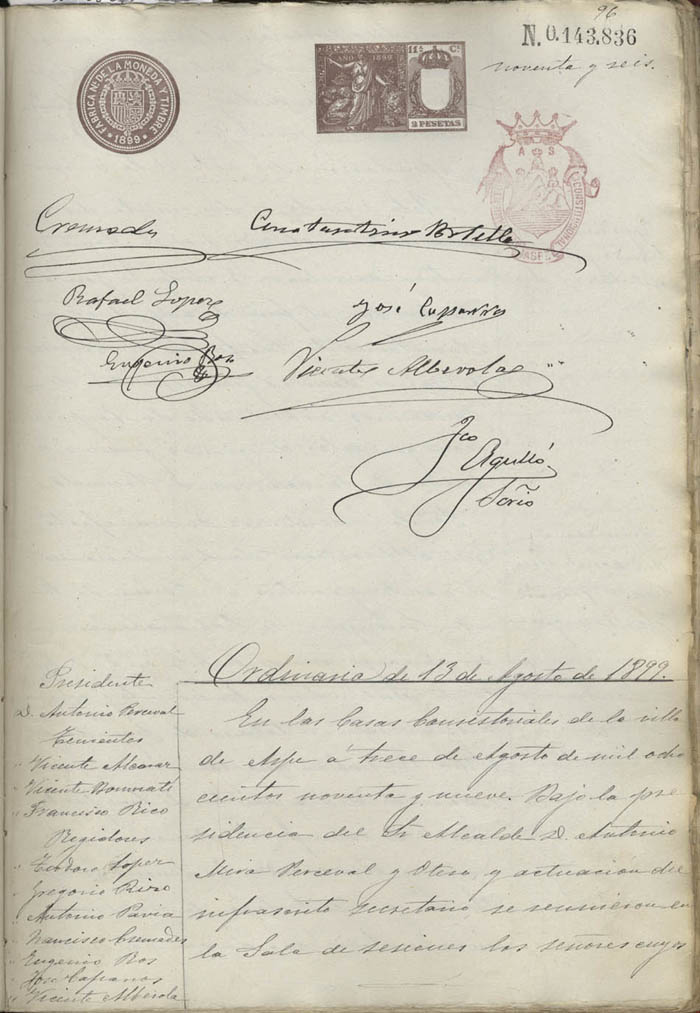 96
N. 0.143.836
noventa y seis.
FABRICA NL. DE LA MONEDA Y TIMBRE
1899
AÑO 1899
11ª Cª
2 PESETAS
A S
CONSTITUCIONAL
ASPE
Cremades
Constantino Botella
Rafael Lopez
José Caparros
Eugenio Bos
Vicente Alberola
Fco
Agulló
Srio
Ordinaria de 13 de Agosto de 1899.
Presidente
D. Antonio Perceval
Tenientes
" Vicente Alcaraz
" Vicente
" Francisco Rico
Regidores
" Teodoro López
" Gregorio Rizo
" Antonio Pavia
" Francisco Cremades
" Eugenio Bos
" José Caparros
" Vicente Alberola
En las Casas Consistoriales de la villa
de Aspe á trece de Agosto de mil ocho
cientos noventa y nueve. Bajo la pre
sidencia del Sr Alcalde D. Antonio
Mira Perceval y Otero, y actuación del
infrascrito secretario se reunieron en
la Sala de sesiones los señores cuyos